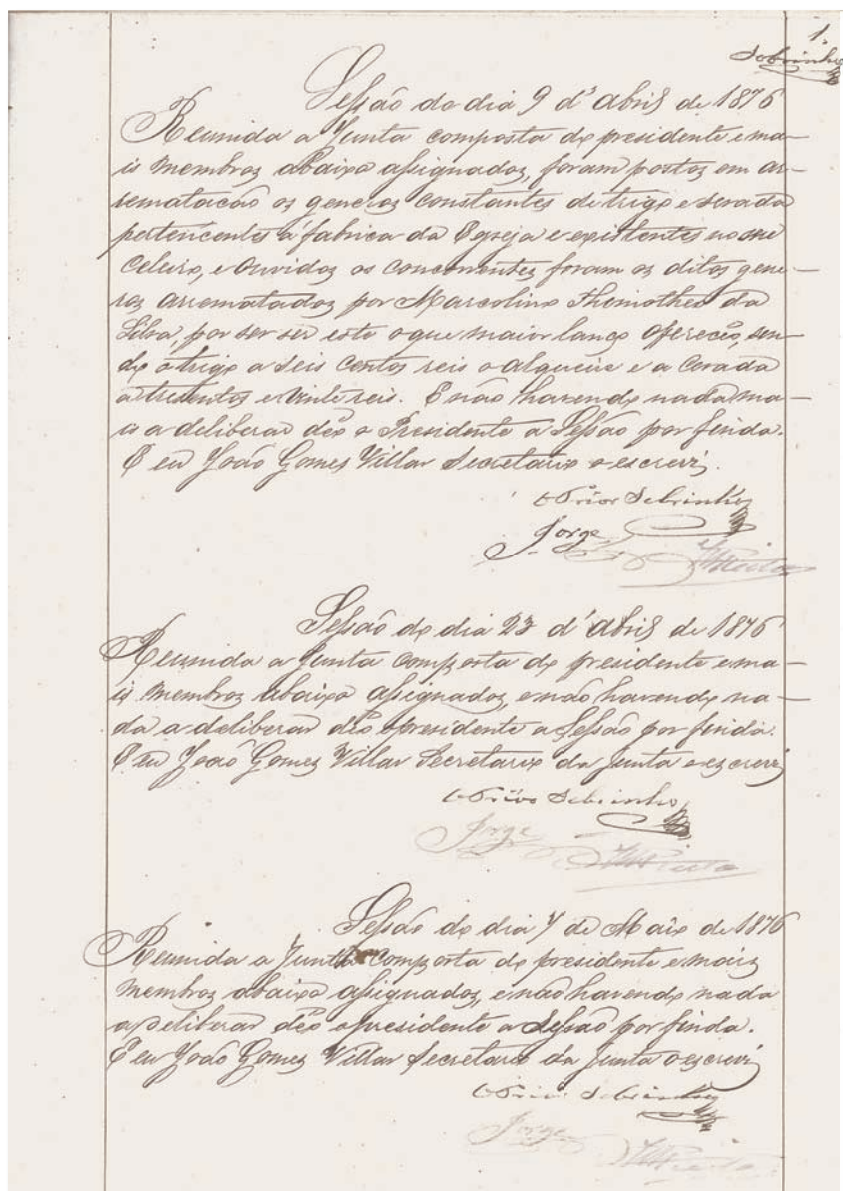 1.
Sobrinho
Sessão do dia 9 d'abril de 1876
Reunida a Junta composta do presidente e ma-
is membros abaixo assignados, foram postos em ar-
rematacão os generos constantes de trigo e serada
pertencentes á fabrica da Egreja e existentes no seu
Celeiro, e ouvidos os concorrentes foram os ditos gene-
ros arrematados por Marcolino Thimotheo da
Silva, por ser ser este o que maior lanço offereceo, sen-
do o trigo a seis centos reis o alqueire e a Cerada
a trezentos e vinte reis. E não havendo nada ma-
is a deliberar deo o Presidente a Sessão por finda.
E eu João Gomes Villar Secretario o escrevi.
O Prior Sobrinho
Jorge
Sessão do dia 23 d'abril de 1876
Reunida a Junta composta do presidente e ma-
is membros abaixo assignados, e não havendo na-
da a deliberar deo o presidente a Sessão por finda.
E eu João Gomes Villar Secretario da Junta o escrevi
O Prior Sobrinho
Jorge
Sessão do dia 7 de Maio de 1876
Reunida a Junta composta do presidente e mais
membros abaixo assignados, e não havendo nada
a deliberar deo o presidente a Sessão por finda.
E eu João Gomes Villar Secretario da Junta o escrevi
O Prior Sobrinho
Jorge